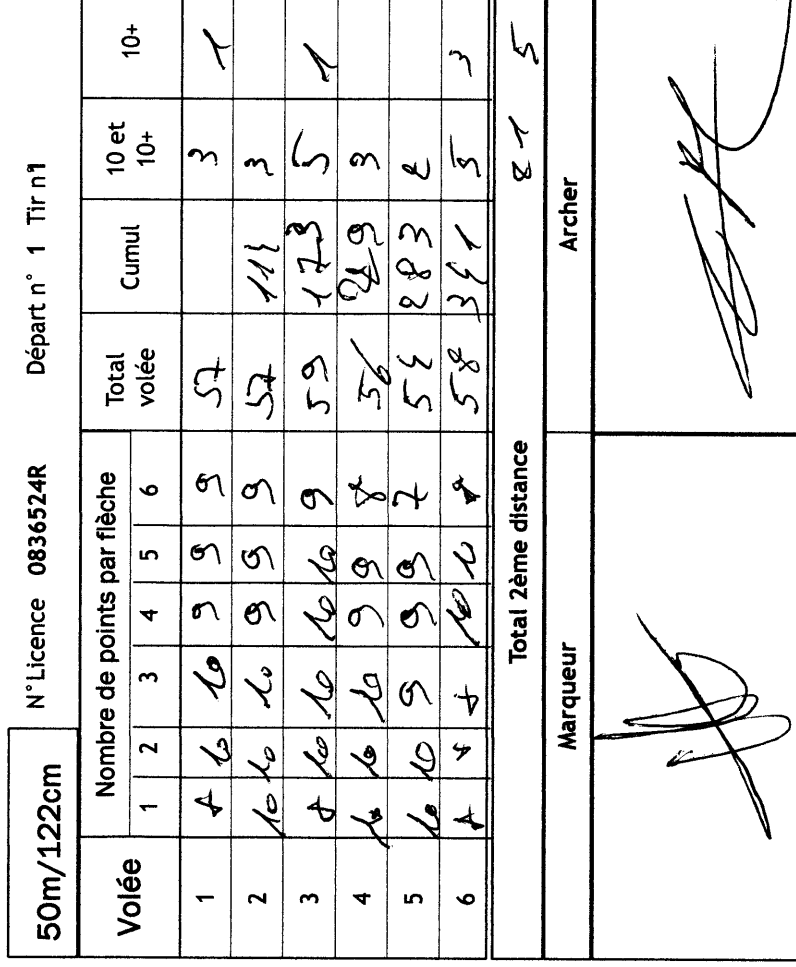 50m/122cm N°Licence 0836524R Départ n° 1 Tir n1
Volée Nombre de points par flèche Total volée Cumul 10 et 10+ 10+
1 2 3 4 5 6
1 + 10 10 9 9 9 57 3 1
2 10 10 10 9 9 9 57 114 3
3 + 10 10 10 10 9 59 173 5 1
4 10 10 10 9 9 8 56 229 3
5 10 10 9 9 9 7 54 283 2
6 + + + 10 10 8 58 341 5 3
Total 2ème distance 21 5
Marqueur Archer